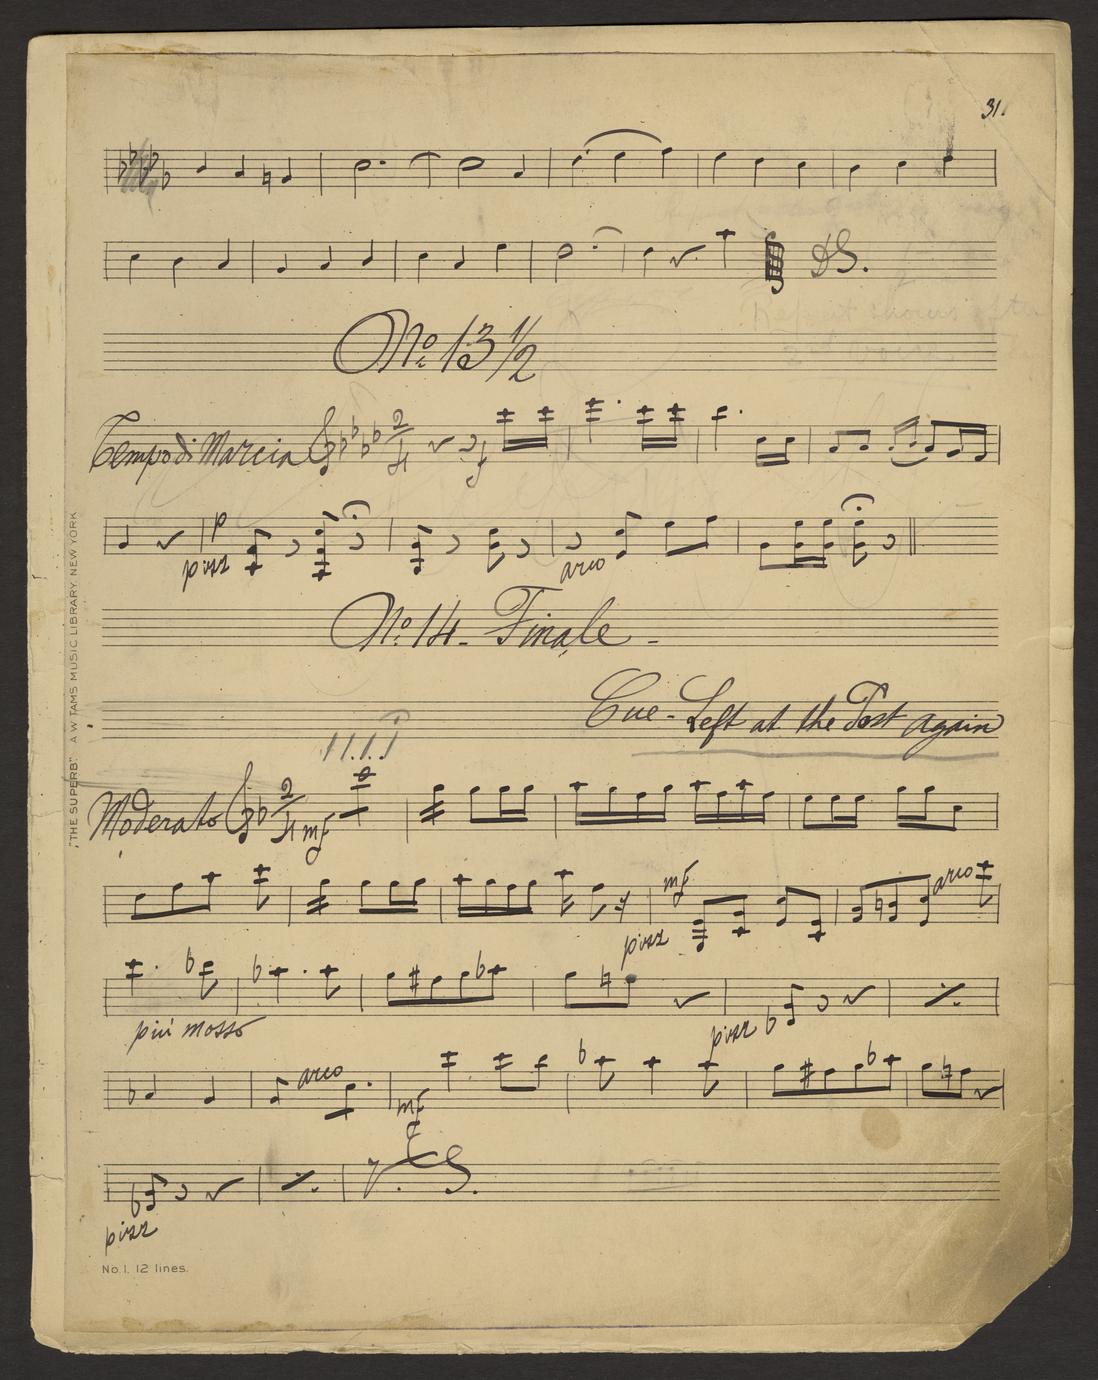 31.
D.S.
No. 13 1/2
Tempo di Marcia 2/4 f
p
pizz arco
No. 14 - Finale -
Cue - Left at the Post again
Moderato 2/4 mf
mf arco
pizz
più mosso pizz
arco
mf
V.S.
pizz
No. 1. 12 lines.
"THE SUPERB". A W TAMS MUSIC LIBRARY. NEW YORK